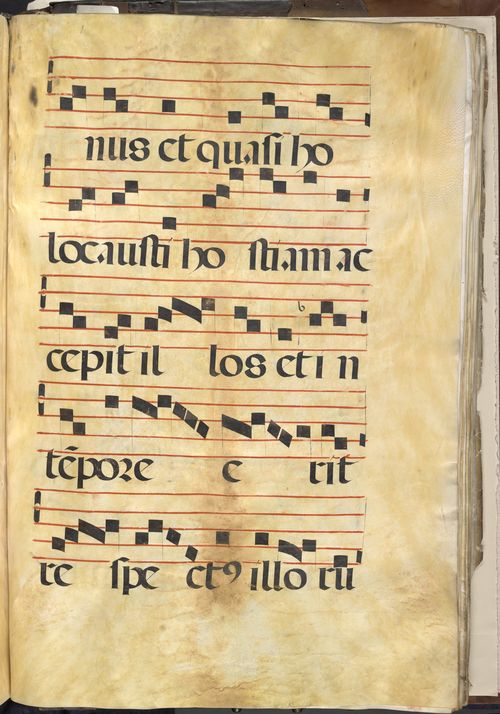 nus et quasi ho
locausti ho stiam ac
cepit il los et i n
tēpore e rit
re spe ctꝰ illo rū